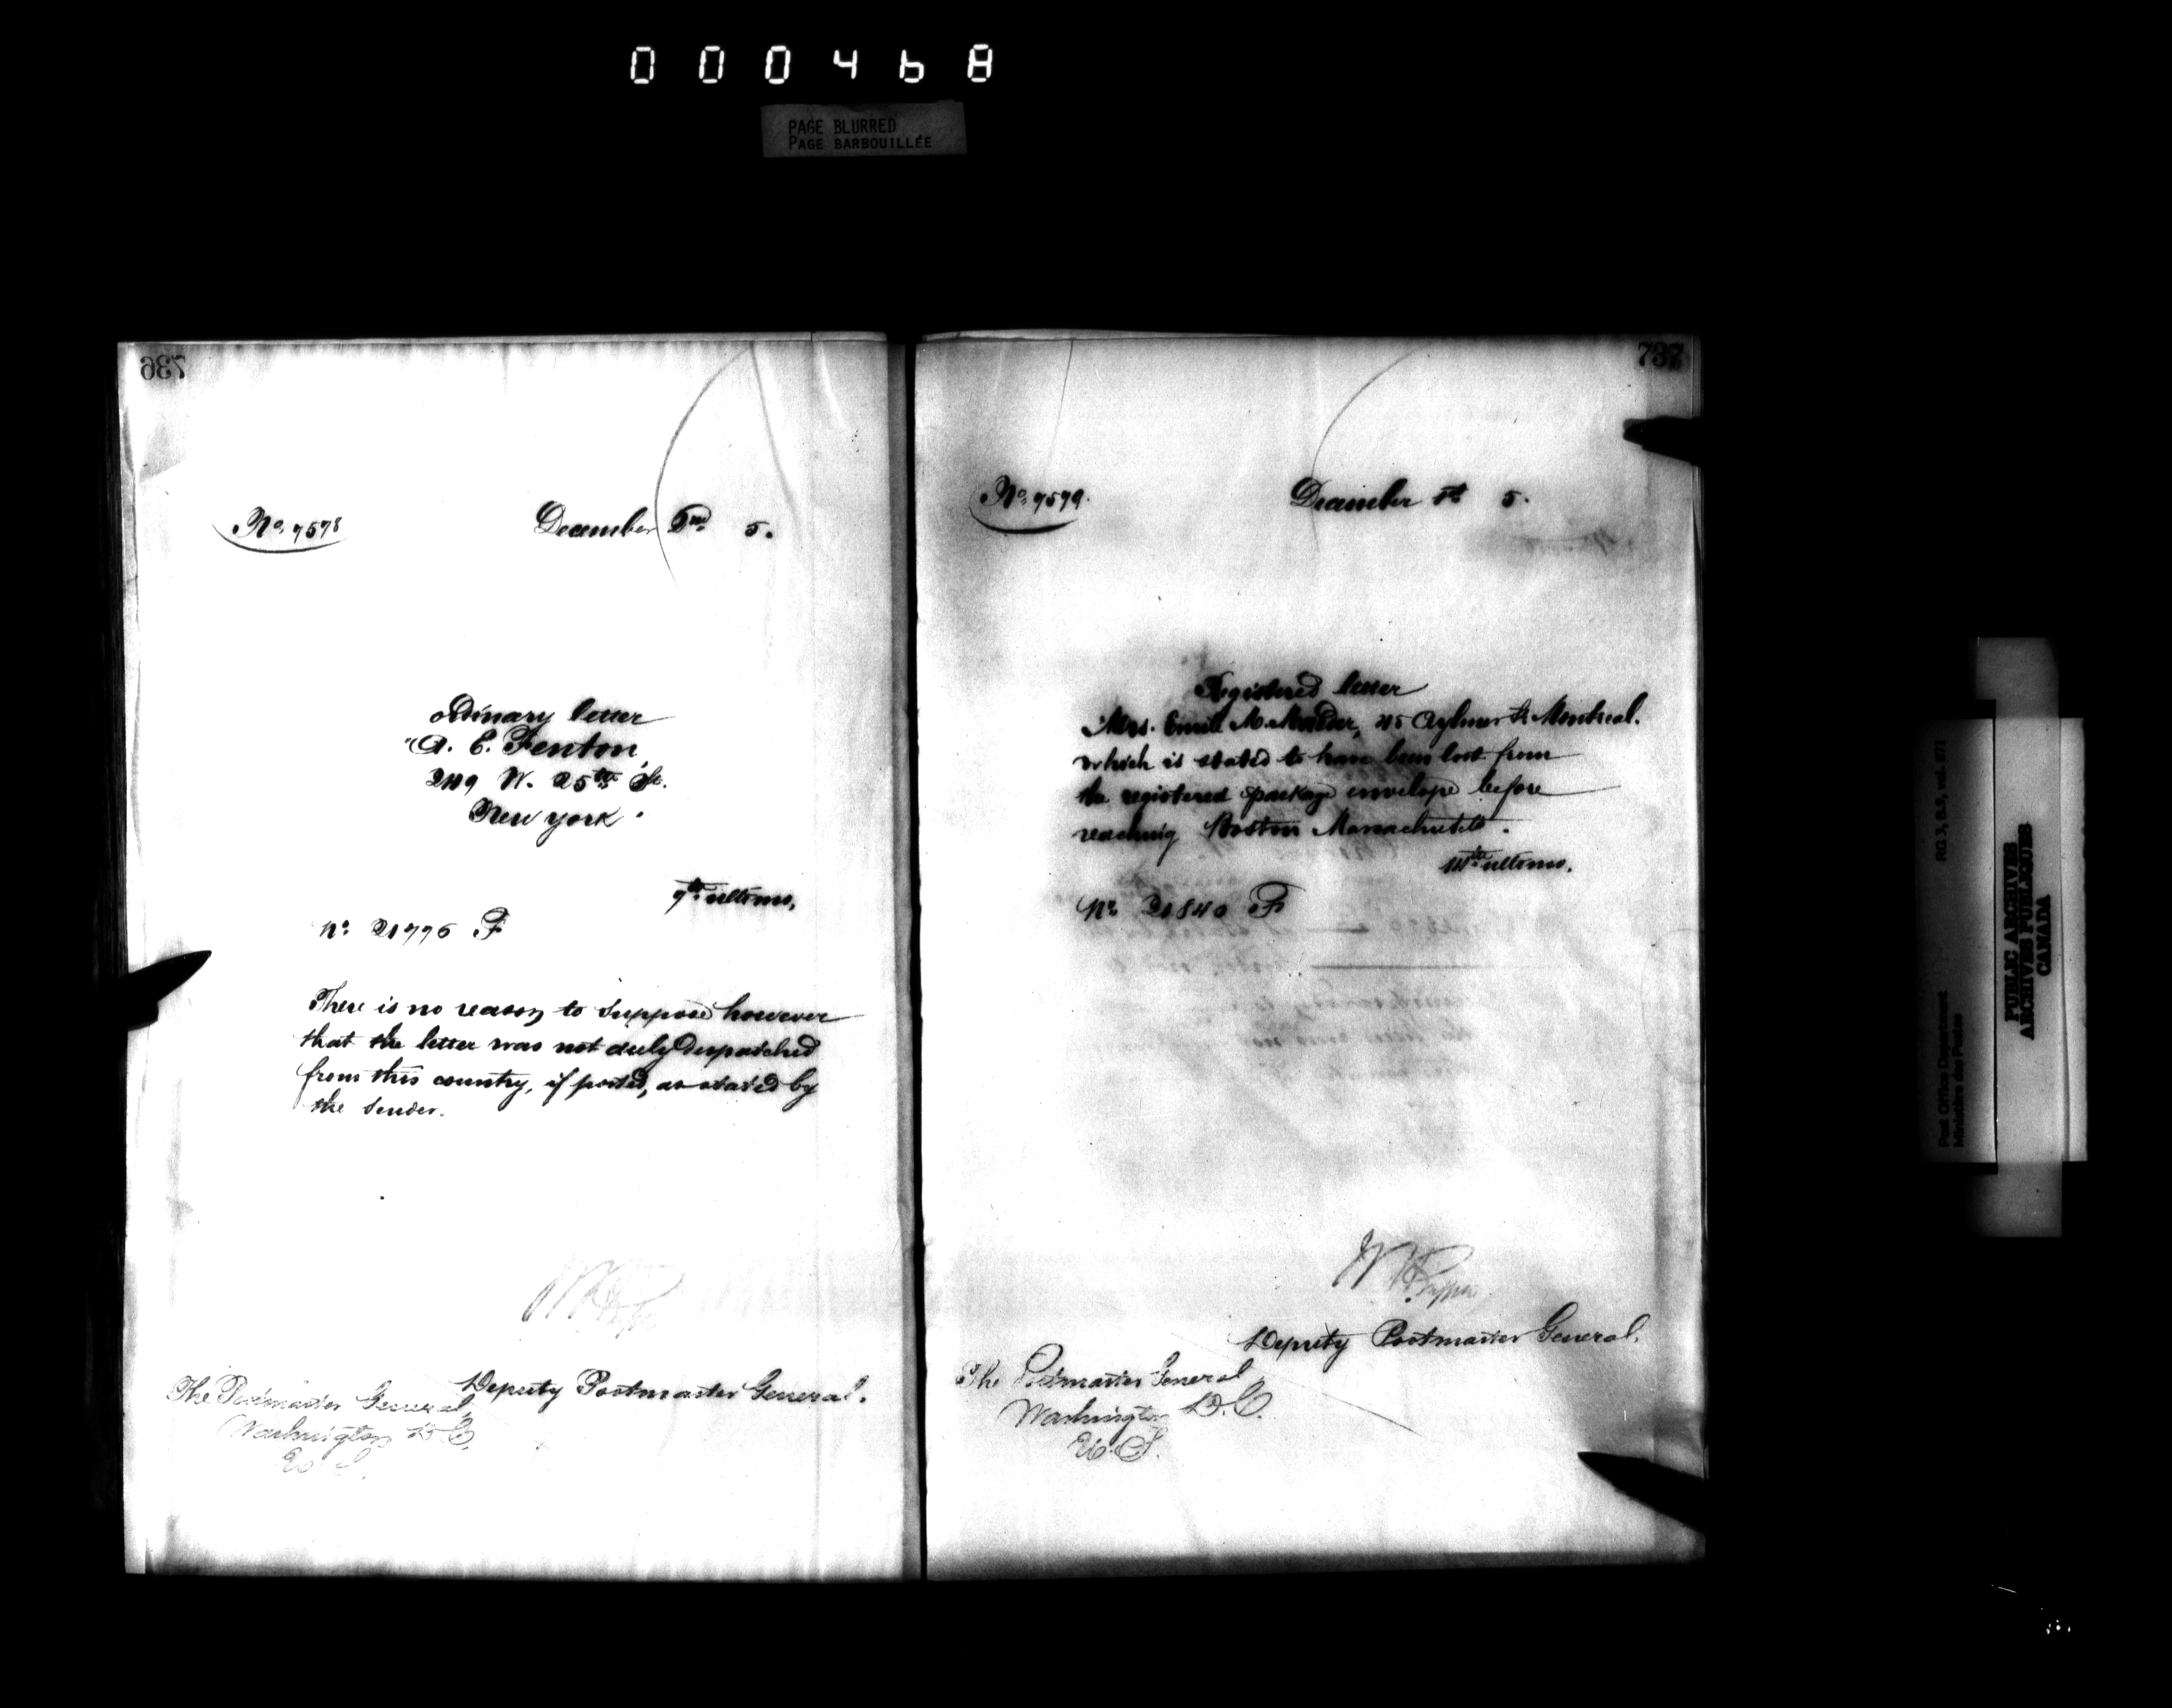 000468
PAGE BLURRED
PAGE BARBOUILLÉE
736
No. 7578
December 5.
ordinary letter
A. E. Fenton,
249 W. 25th St.
New York.
9th ultimo,
No. 21776 F
There is no reason to suppose however
that the letter was not duly despatched
from this country, if posted, as stated by
the sender.
Deputy Postmaster General.
The Postmaster General,
Washington D.C.
U.S.
737
No. 7579.
December 5.
Registered letter
Mrs. 45 Aylmer St. Montreal.
which is stated to have been lost from
the registered package envelope before
reaching Boston Massachusetts.
14th ultimo.
No. 21840 F
Deputy Postmaster General.
The Postmaster General,
Washington D.C.
U.S.
RG 3, B.5, vol. 871
Post Office Department
Ministère des Postes
PUBLIC ARCHIVES
ARCHIVES PUBLIQUES
CANADA